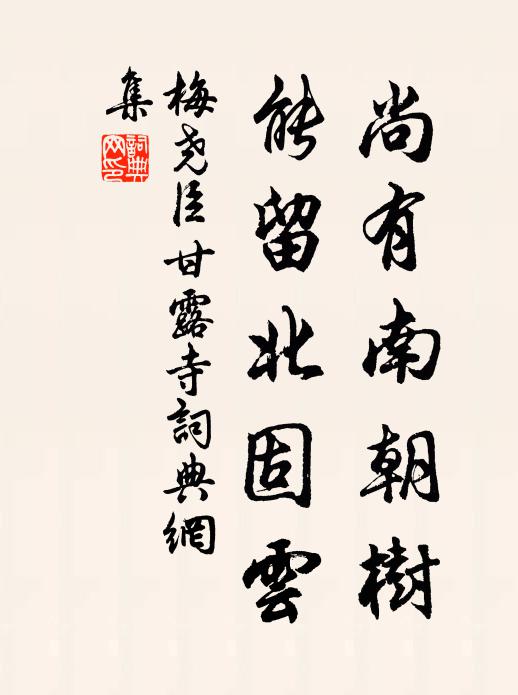 尚有南朝樹
能留北固雲
梅堯臣甘露寺詞典網
集
詞典網印